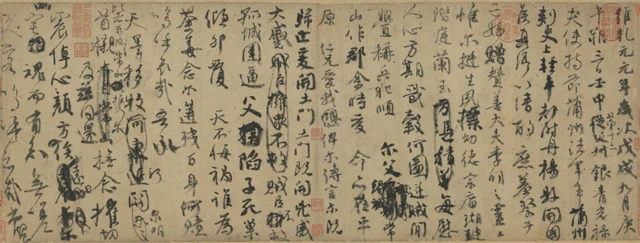 維乾元元年歲次戊戌九月庚
午朔三日壬申第十三叔銀青光祿
夫使持節蒲州諸軍事蒲州
刺史上輕車都尉丹楊縣開國
侯真卿以清酌庶羞祭于
亡姪贈贊善大夫季明之靈曰
惟爾挺生夙標幼德宗廟瑚璉
階庭蘭玉每慰
人心方期戩穀何圖逆賊間
釁稱兵犯順爾父竭誠常
山作郡余時受命亦在平
原仁兄愛我俾爾傳言爾既
歸止爰開土門土門既開兇威
大蹙賊臣不救
孤城圍逼父陷子死巢
傾卵覆天不悔禍誰為
荼毒念爾遘殘百身何贖
嗚乎哀哉吾承
天澤移牧河關泉明
比者再陷常山攜爾
首櫬及茲同還撫念摧切
震悼心顏方俟遠日
爾幽宅魂而有知無嗟
久客嗚呼哀哉尚饗